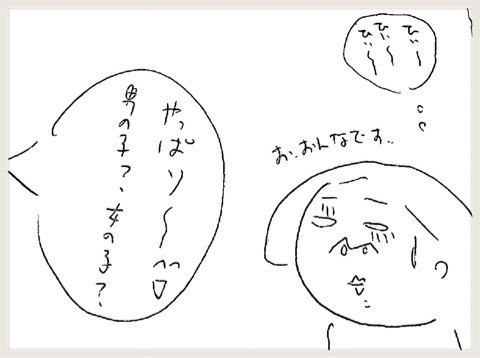 ひぃ〜
ひぃ〜
ひぃ〜
お、おんなです..
やっぱり〜^^♡
男の子？、女の子？